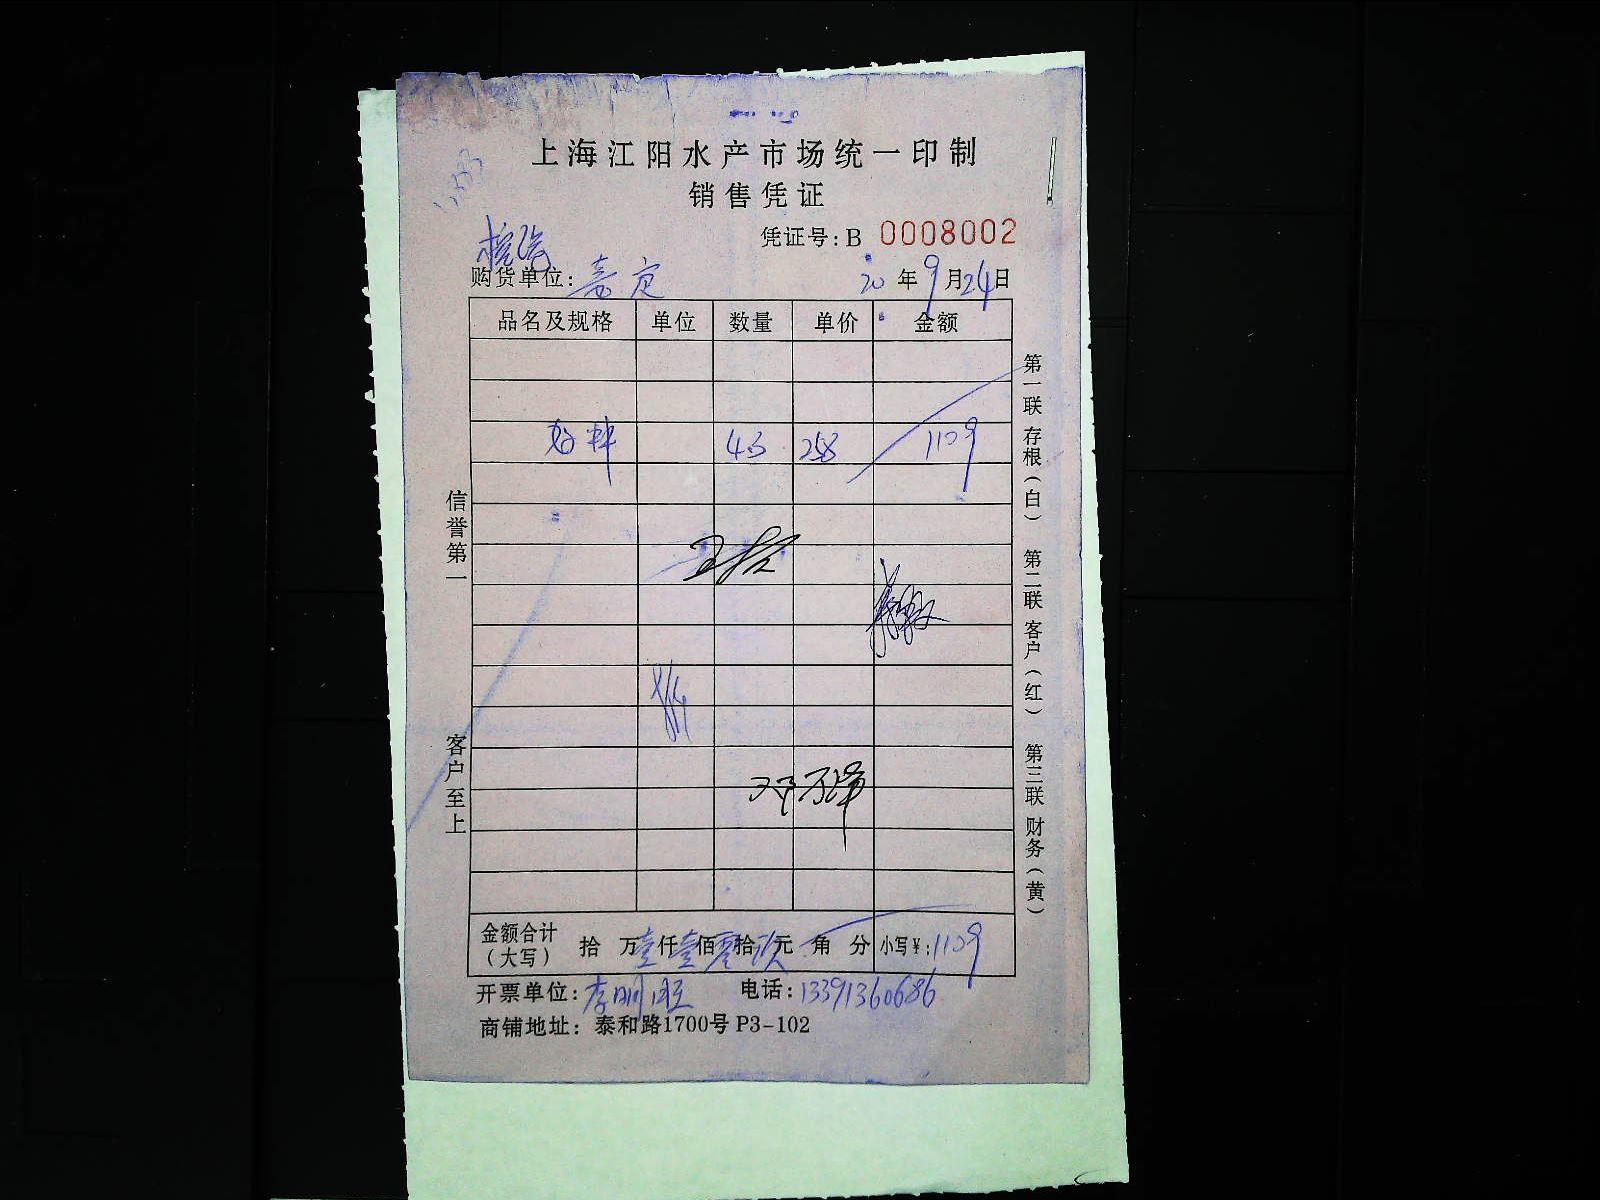 上海江阳水产市场统一印制
销售凭证
凭证号:B 0008002
购货单位: 嘉定 20年9月24日
品名及规格 单位 数量 单价 金额
43 258 1109
信誉第一
客户至上
第一联 存根(白) 第二联 客户(红) 第三联 财务(黄)
金额合计(大写) 拾 万壹仟壹佰零拾玖元 角 分 小写¥:1109
开票单位: 电话:13391360686
商铺地址: 泰和路1700号 P3-102